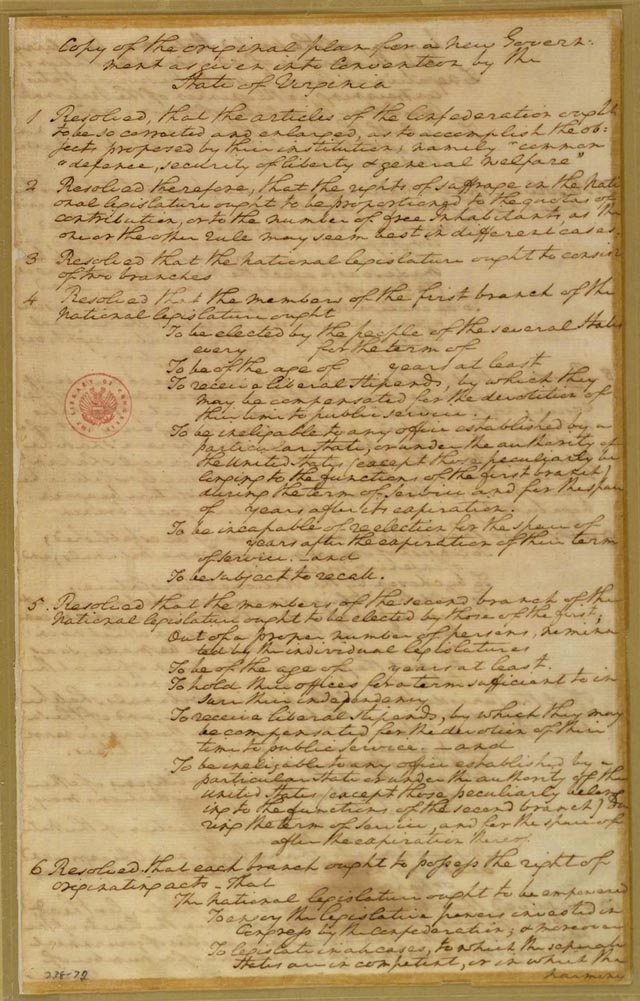 Copy of the original plan for a new Govern-
ment as given into Convention by the
State of Virginia
1 Resolved, that the articles of the Confederation ought
to be so corrected and enlarged, as to accomplish the ob-
jects proposed by their institution; namely "common
"defence, security of liberty & general welfare"
2 Resolved therefore, that the rights of suffrage in the Nati
onal legislature ought to be proportioned to the quotas of
contribution, or to the number of free Inhabitants, as the
one or the other rule may seem best in different cases.
3 Resolved that the national legislature ought to consist
of two branches
4 Resolved that the members of the first branch of the
National legislature ought
To be elected by the people of the several States
every for the term of
To be of the age of years at least
To receive liberal stipends, by which they
may be compensated for the devotition of
their time to public service.
To be ineligable to any office established by a
particular State, or under the authority of
the United States (except those peculiarly be
longing to the functions of the first branch)
during the term of service and for the space
of years after its expiration.
To be incapable of reelection for the space of
years after the expiration of their term
of service. and
To be subject to recall.
5. Resolved that the members of the second branch of the
National legislature ought to be elected by those of the first,
Out of a proper number of persons, nomina
ted by the individual legislatures
To be of the age of years at least.
To hold their offices for a term sufficient to in
sure their independancy
To receive liberal stipends, by which they may
be compensated for the devotion of their
time to public service. - and
To be ineligable to any office established by a
particular State or under the authority of the
United States (except those peculiarly belong
ing to the functions of the second branch) Du
ring the term of service, and for the space of
after the expiration thereof.
6 Resolved. that each branch ought to possess the right of
originating acts - that
The National legislature ought to be empowered
To enjoy the legislative powers invested in
Congress by the confederation; & moreover
To legislate in all cases, to which the seperate
States are in competent, or in which the
harmony
THE LIBRARY OF CONGRESS